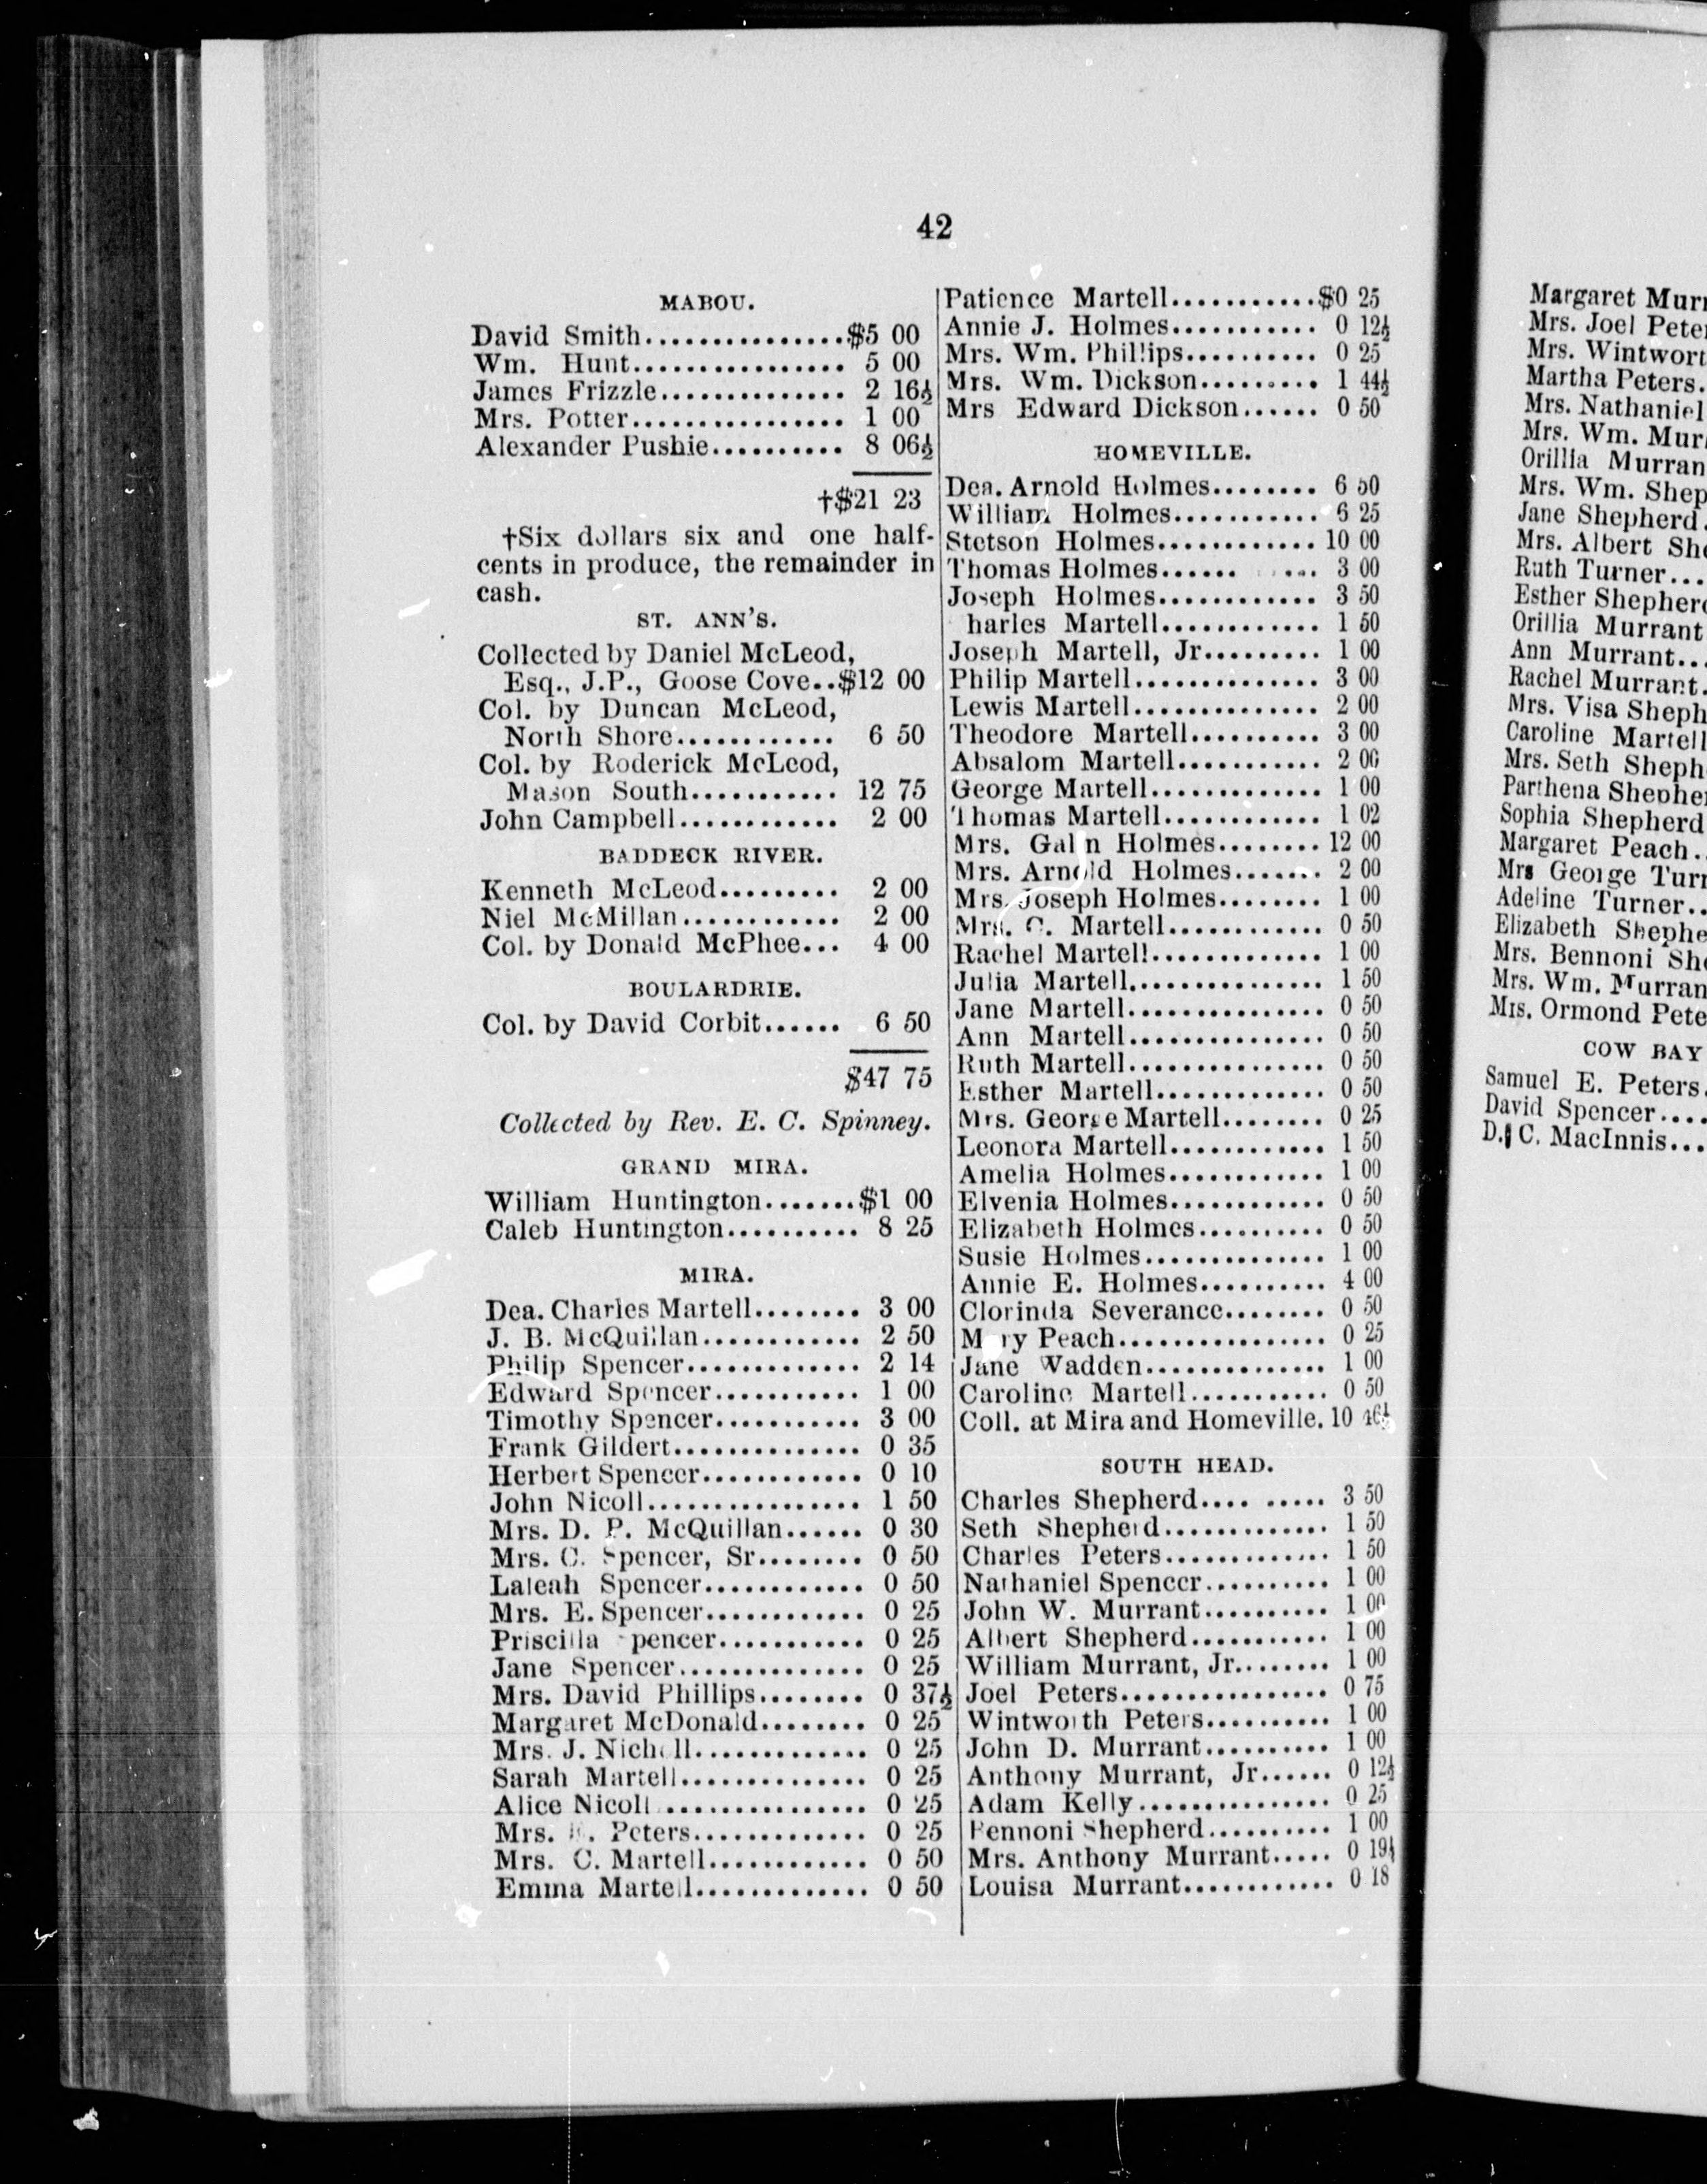 42
MABOU.
David Smith...............$5 00
Wm. Hunt................ 5 00
James Frizzle.............. 2 16½
Mrs. Potter................ 1 00
Alexander Pushie.......... 8 06½
†$21 23
†Six dollars six and one half-
cents in produce, the remainder in
cash.
ST. ANN'S.
Collected by Daniel McLeod,
Esq., J.P., Goose Cove..$12 00
Col. by Duncan McLeod,
North Shore............ 6 50
Col. by Roderick McLeod,
Mason South........... 12 75
John Campbell............ 2 00
BADDECK RIVER.
Kenneth McLeod......... 2 00
Niel McMillan............ 2 00
Col. by Donald McPhee... 4 00
BOULARDRIE.
Col. by David Corbit...... 6 50
$47 75
Collected by Rev. E. C. Spinney.
GRAND MIRA.
William Huntington.......$1 00
Caleb Huntington.......... 8 25
MIRA.
Dea. Charles Martell........ 3 00
J. B. McQuillan............ 2 50
Philip Spencer............. 2 14
Edward Spencer........... 1 00
Timothy Spencer........... 3 00
Frank Gildert.............. 0 35
Herbert Spencer............ 0 10
John Nicoll................ 1 50
Mrs. D. P. McQuillan...... 0 30
Mrs. C. Spencer, Sr........ 0 50
Laleah Spencer............ 0 50
Mrs. E. Spencer............ 0 25
Priscilla pencer........... 0 25
Jane Spencer.............. 0 25
Mrs. David Phillips........ 0 37½
Margaret McDonald........ 0 25
Mrs. J. Nichell............. 0 25
Sarah Martell.............. 0 25
Alice Nicoll ............... 0 25
Mrs. . Peters............. 0 25
Mrs. C. Martell............ 0 50
Emma Martell............. 0 50
Patience Martell...........$0 25
Annie J. Holmes........... 0 12½
Mrs. Wm. Phillips.......... 0 25
Mrs. Wm. Dickson......... 1 44½
Mrs Edward Dickson...... 0 50
HOMEVILLE.
Dea. Arnold Holmes........ 6 50
William Holmes........... 6 25
Stetson Holmes............ 10 00
Thomas Holmes...... ... 3 00
Joseph Holmes............ 3 50
harles Martell............ 1 50
Joseph Martell, Jr......... 1 00
Philip Martell.............. 3 00
Lewis Martell.............. 2 00
Theodore Martell.......... 3 00
Absalom Martell........... 2 00
George Martell............. 1 00
Thomas Martell............ 1 02
Mrs. Gal n Holmes........ 12 00
Mrs. Arnold Holmes....... 2 00
Mrs. Joseph Holmes........ 1 00
Mrs. C. Martell............ 0 50
Rachel Martell............. 1 00
Julia Martell............... 1 50
Jane Martell............... 0 50
Ann Martell............... 0 50
Ruth Martell............... 0 50
Esther Martell............. 0 50
Mrs. George Martell........ 0 25
Leonora Martell............ 1 50
Amelia Holmes............ 1 00
Elvenia Holmes............ 0 50
Elizabeth Holmes.......... 0 50
Susie Holmes.............. 1 00
Annie E. Holmes.......... 4 00
Clorinda Severance........ 0 50
M ry Peach................ 0 25
Jane Wadden.............. 1 00
Caroline Martell........... 0 50
Coll. at Mira and Homeville. 10 46½
SOUTH HEAD.
Charles Shepherd.... ..... 3 50
Seth Shepherd............. 1 50
Charles Peters............. 1 50
Nathaniel Spencer.......... 1 00
John W. Murrant.......... 1 00
Albert Shepherd........... 1 00
William Murrant, Jr........ 1 00
Joel Peters................ 0 75
Wintworth Peters.......... 1 00
John D. Murrant.......... 1 00
Anthony Murrant, Jr...... 0 12½
Adam Kelly............... 0 25
Bennoni Shepherd.......... 1 00
Mrs. Anthony Murrant..... 0 19½
Louisa Murrant............ 0 18
Margaret Murr
Mrs. Joel Peter
Mrs. Wintwort
Martha Peters.
Mrs. Nathaniel
Mrs. Wm. Mur
Orillia Murran
Mrs. Wm. Shep
Jane Shepherd.
Mrs. Albert She
Ruth Turner...
Esther Shepher
Orillia Murrant
Ann Murrant...
Rachel Murrant.
Mrs. Visa Sheph
Caroline Martell
Mrs. Seth Sheph
Parthena Shepher
Sophia Shepherd
Margaret Peach..
Mrs George Turn
Adeline Turner..
Elizabeth Shephe
Mrs. Bennoni She
Mrs. Wm. Murran
Mrs. Ormond Pete
COW BAY
Samuel E. Peters.
David Spencer....
D. C. MacInnis...